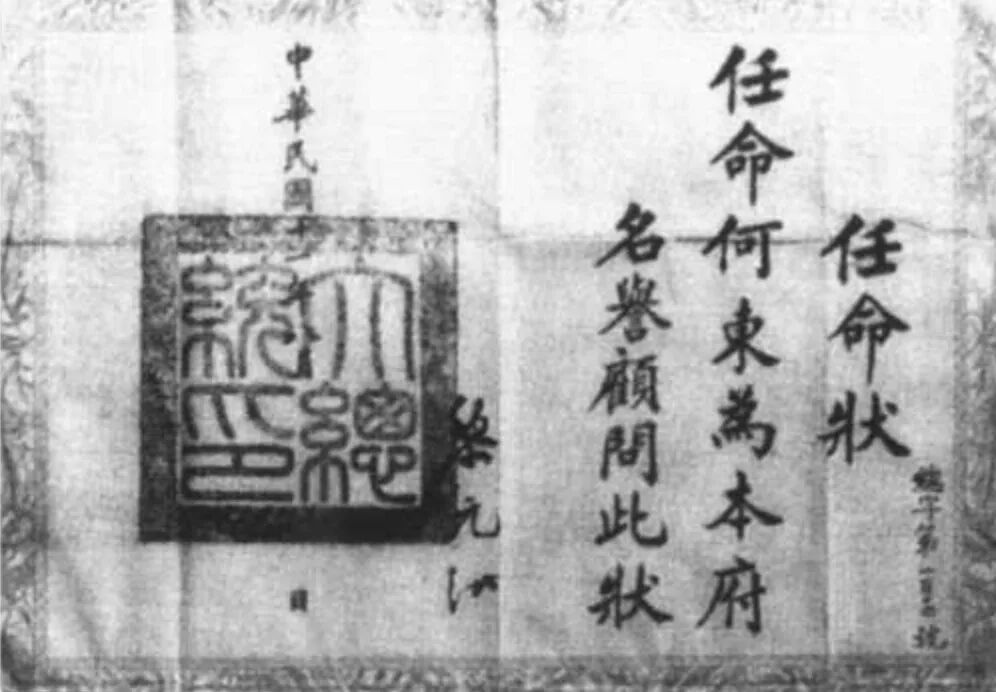 任命狀
總字第一百 號
任命何東為本府
名譽顧問此狀
黎元洪
中華民國十 年
日
大總統印